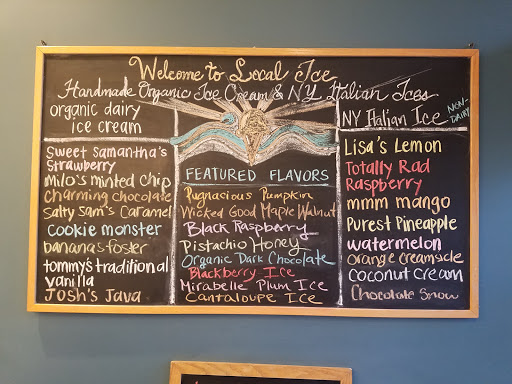 Welcome to Local Ice
Handmade Organic Ice Cream & NY Italian Ices
organic dairy
ice cream
Sweet Samantha's
Strawberry
Milo's Minted Chip
Charming chocolate
Salty Sam's Caramel
Cookie monster
banana's foster
tommy's traditional
vanilla
Josh's Java
FEATURED FLAVORS
Pugnacious Pumpkin
Wicked Good Maple Walnut
Black Raspberry
Pistachio Honey
Organic Dark Chocolate
Blackberry Ice
Mirabelle Plum Ice
Cantaloupe Ice
NY Italian Ice
NON-
DAIRY
Lisa's Lemon
Totally Rad
Raspberry
mmm mango
Purest Pineapple
watermelon
orange creamsicle
coconut cream
Chocolate Snow